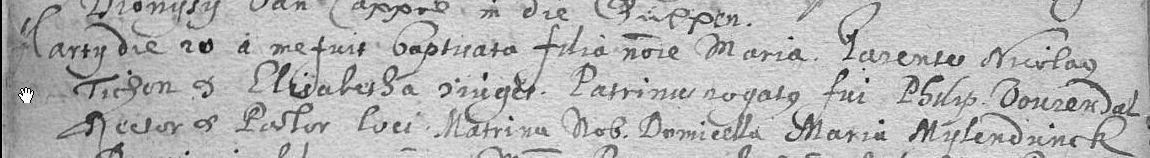 Dionysy van Cappel in die Gulpen.
Marty die 20 a me fuit baptisata filia noie Maria. Parentes Nicolaus
Tichon & Elisabetha Parentes. Patrinus rogatus fui Philip. Dourendal
Rector & Pastor loci. Matrina Nob. Domicella Maria Mylendunck